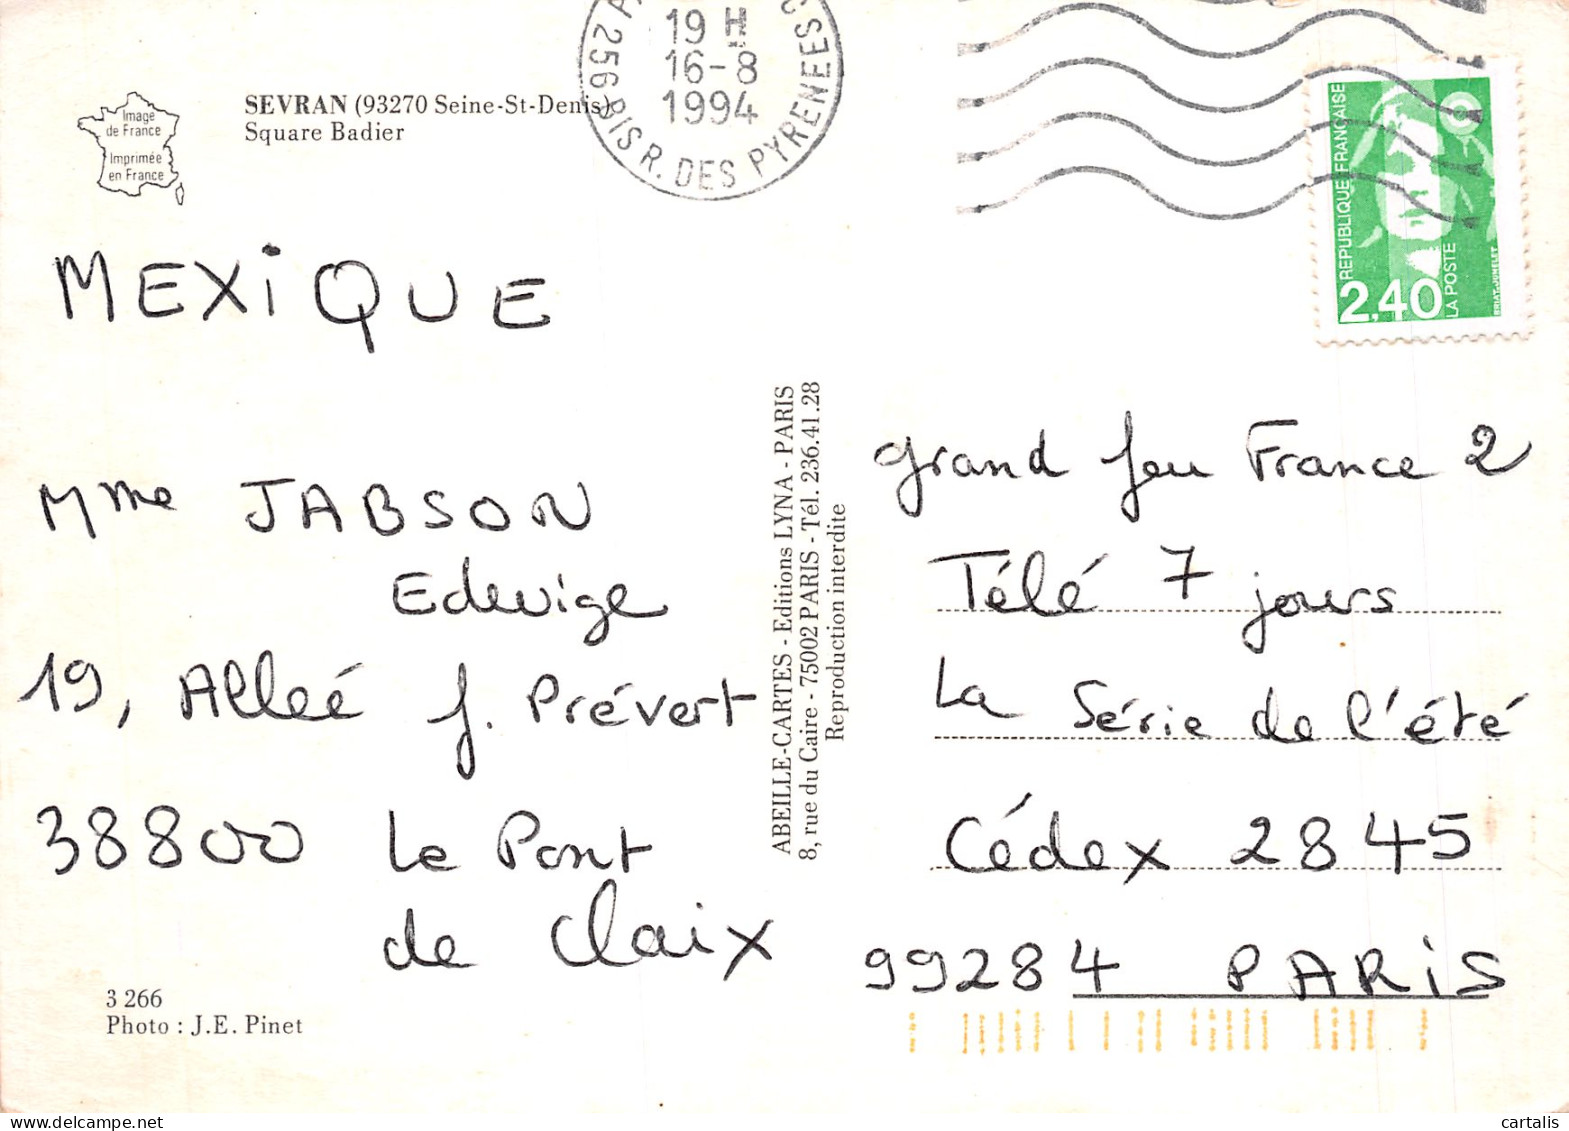 Image
de France
Imprimée
en France
SEVRAN (93270 Seine-St-Denis)
Square Badier
19 H
16-8
1994
256 R. DES PYRENEES
REPUBLIQUE FRANÇAISE
2,40
LA POSTE
BRIAT-JUMELET
MEXiQUE
Mme JABSON
Edwige
19, Alleé J. Prévert
38800 Le Pont
de Claix
3 266
Photo : J.E. Pinet
ABEILLE-CARTES - Editions LYNA - PARIS
8, rue du Caire - 75002 PARIS - Tél. 236.41.28
Reproduction interdite
grand Jeu France 2
Télé 7 jours
La Série de l'été
Cédex 2845
99284 PARiS
cartalis